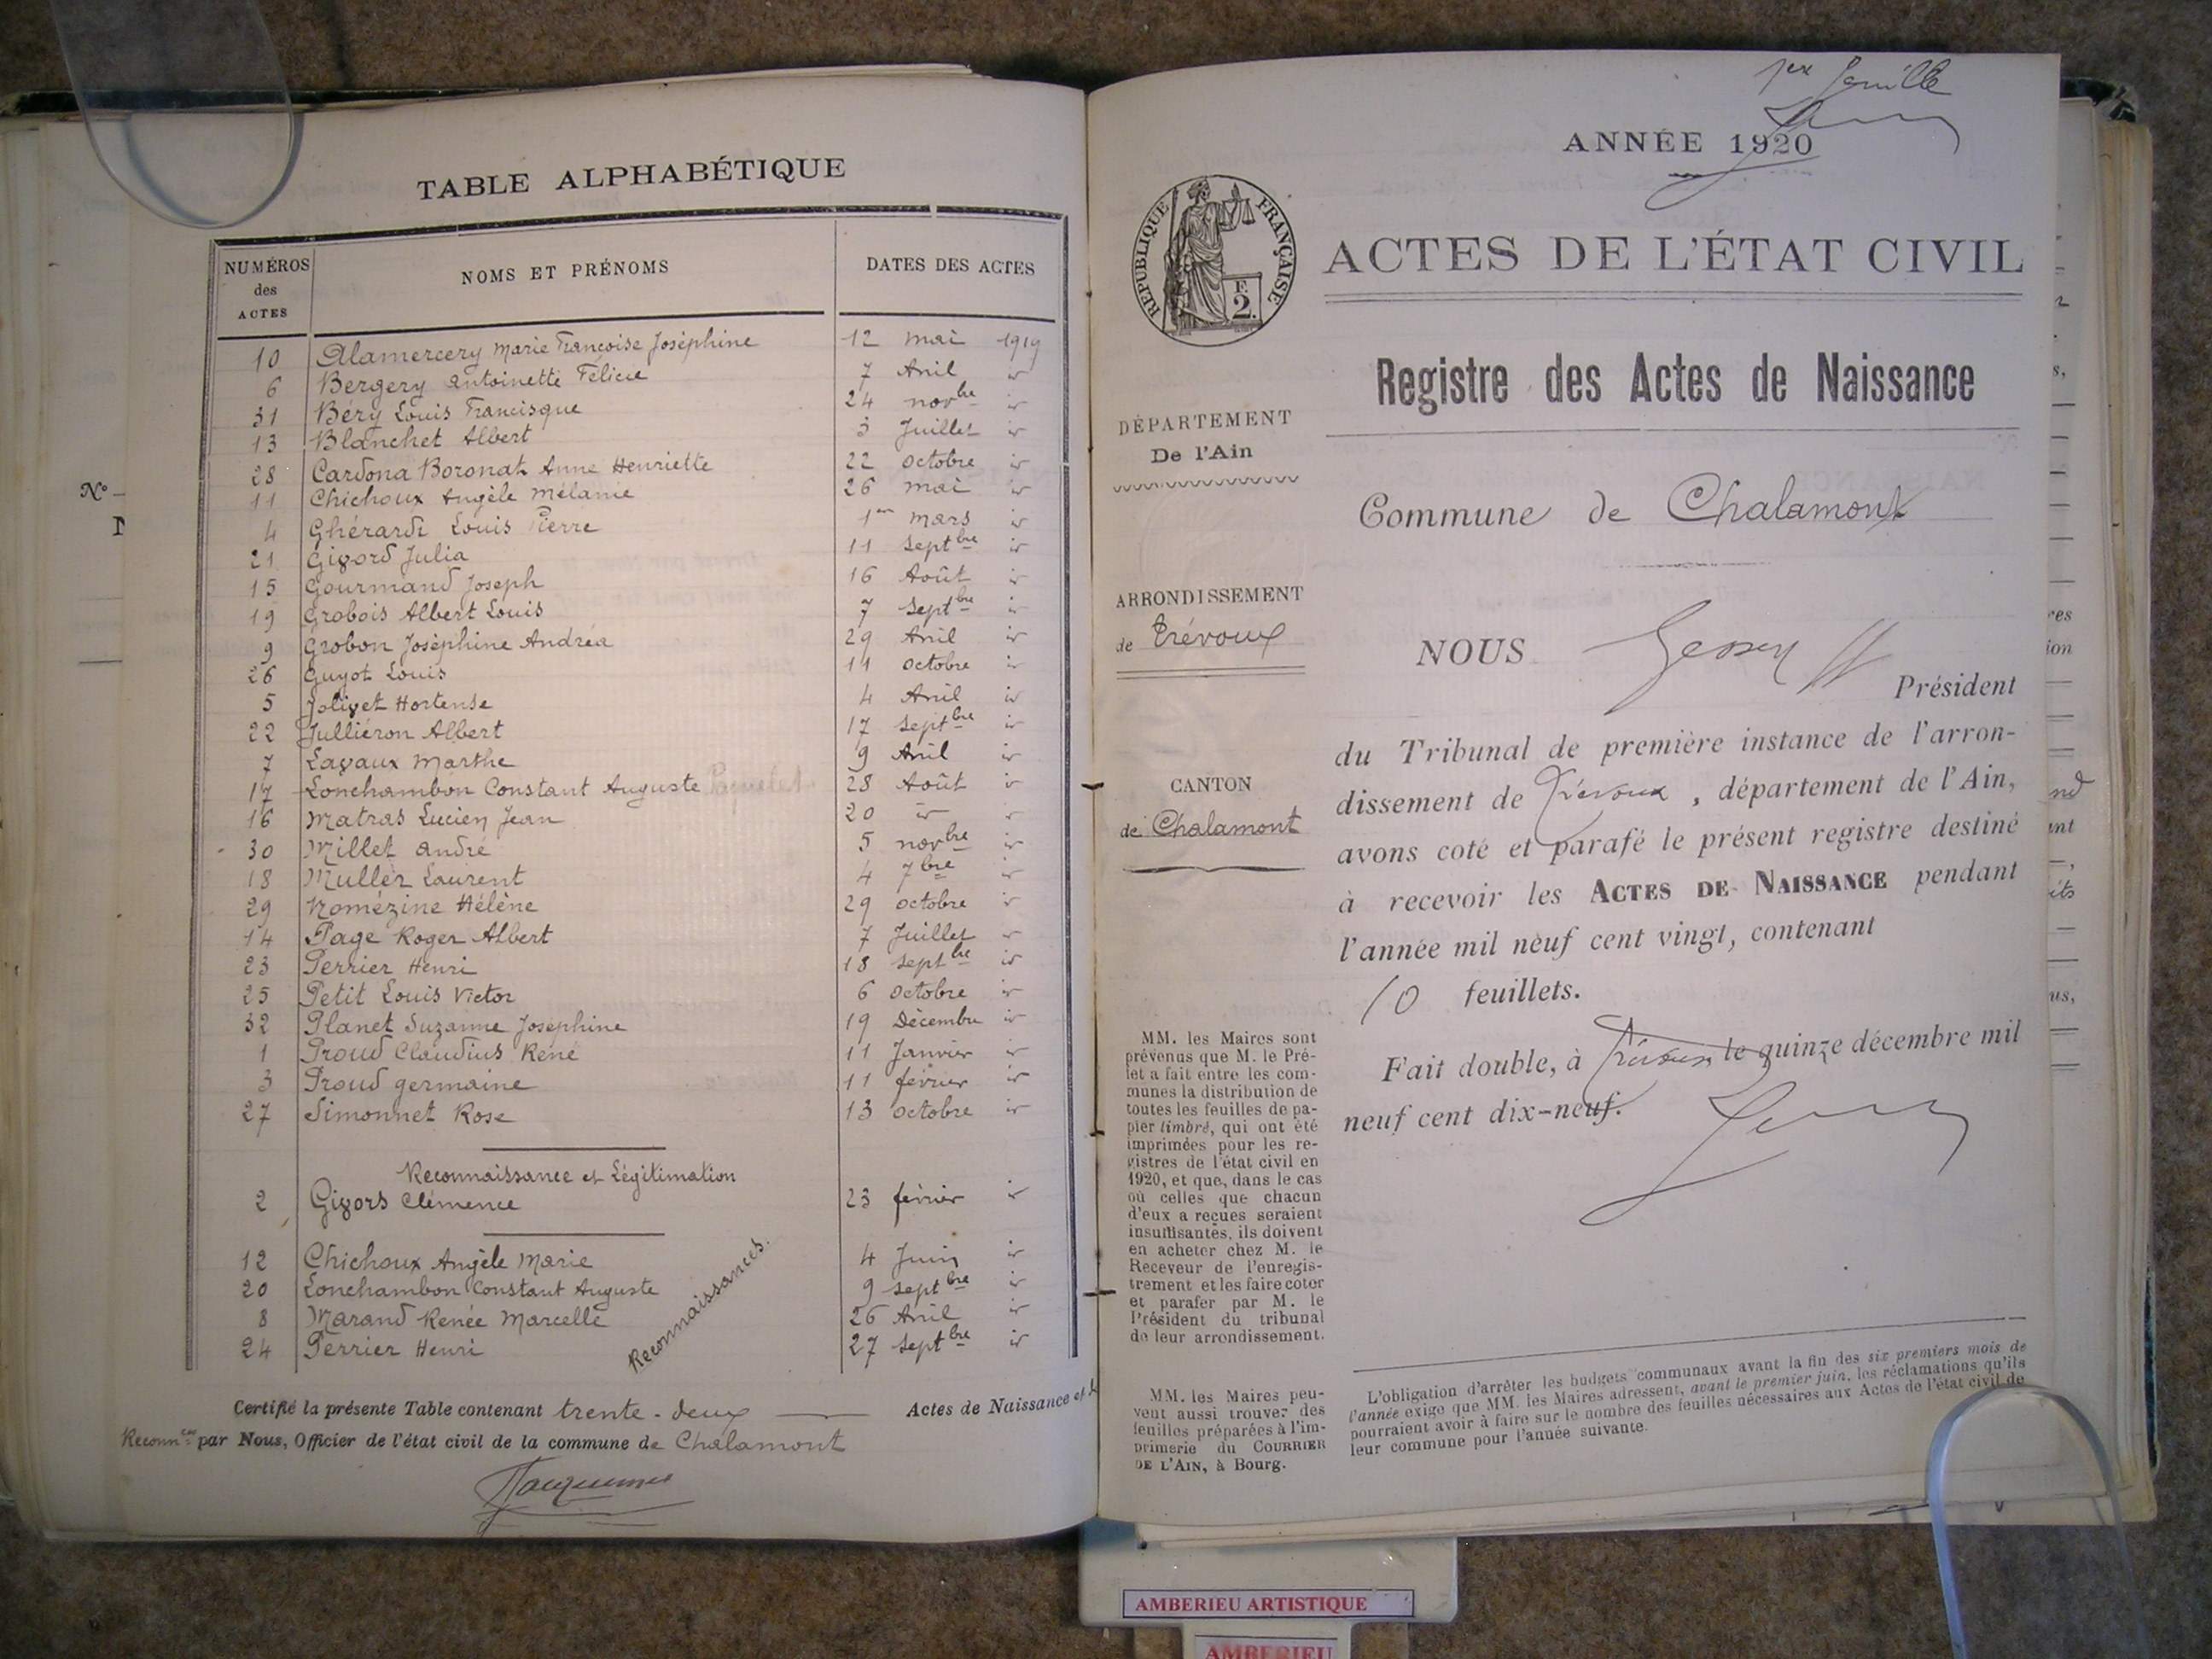 TABLE ALPHABÉTIQUE
NUMÉROS des ACTES
NOMS ET PRÉNOMS
DATES DES ACTES
10 Alamercery Marie Françoise Joséphine 12 mai 1919
6 Bergery Antoinette Félicie 7 Avril id
31 Béry Louis Francisque 24 novbre id
13 Blanchet Albert 3 Juillet id
28 Cardona Boronat Anne Henriette 22 octobre id
11 Chichoux Angèle Mélanie 26 mai id
4 Ghérardi Louis Pierre 1er mars id
21 Givord Julia 11 Septbre id
15 Gourmand Joseph 16 Août id
19 Grobois Albert Louis 7 Septbre id
9 Grobon Joséphine Andréa 29 Avril id
26 Guyot Louis 11 octobre id
5 Jolivet Hortense 4 Avril id
22 Julliéron Albert 17 Septbre id
7 Lavaux Marthe 9 Avril id
17 Lonchambon Constant Auguste 28 Août id
16 Matras Lucien Jean 20 id id
30 Millet André 5 novbre id
18 Muller Laurent 4 7bre id
29 Nomézine Hélène 29 octobre id
14 Page Roger Albert 7 Juillet id
23 Perrier Henri 18 Septbre id
25 Petit Louis Victor 6 octobre id
32 Planet Suzanne Joséphine 19 Décembre id
1 Proud Claudius René 11 Janvier id
3 Proud Germaine 11 février id
27 Simonnet Rose 13 octobre id
Reconnaissance et Légitimation
2 Givors Clémence 23 février id
12 Chichoux Angèle Marie 4 Juin id
20 Lonchambon Constant Auguste 9 Septbre id
8 Marand Renée Marcelle 26 Avril id
24 Perrier Henri 27 Septbre id
Reconnaissances.
Certifié la présente Table contenant trente-deux Actes de Naissance et
Reconnces par Nous, Officier de l'état civil de la commune de Chalamont
1er feuille
ANNÉE 1920
RÉPUBLIQUE FRANÇAISE
F. 2.
ACTES DE L'ÉTAT CIVIL
Registre des Actes de Naissance
DÉPARTEMENT
De l'Ain
Commune de Chalamont
ARRONDISSEMENT
de Trévoux
CANTON
de Chalamont
NOUS
Président
du Tribunal de première instance de l'arron-
dissement de Trévoux, département de l'Ain,
avons coté et parafé le présent registre destiné
à recevoir les ACTES DE NAISSANCE pendant
l'année mil neuf cent vingt, contenant
10 feuillets.
Fait double, à Trévoux le quinze décembre mil
neuf cent dix-neuf.
MM. les Maires sont
prévenus que M. le Pré-
fet a fait entre les com-
munes la distribution de
toutes les feuilles de pa-
pier timbré, qui ont été
imprimées pour les re-
gistres de l'état civil en
1920, et que, dans le cas
où celles que chacun
d'eux a reçues seraient
insuffisantes, ils doivent
en acheter chez M. le
Receveur de l'enregis-
trement et les faire coter
et parafer par M. le
Président du tribunal
de leur arrondissement.
MM. les Maires peu-
vent aussi trouver des
feuilles préparées à l'im-
primerie du COURRIER
DE L'AIN, à Bourg.
L'obligation d'arrêter les budgets communaux avant la fin des six premiers mois de
l'année exige que MM. les Maires adressent, avant le premier juin, les réclamations qu'ils
pourraient avoir à faire sur le nombre des feuilles nécessaires aux Actes de l'état civil de
leur commune pour l'année suivante.
AMBERIEU ARTISTIQUE
AMBERIEU